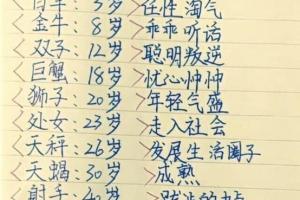 〈白羊:3岁〉任性淘气
〈金牛:8岁〉乖乖听话
〈双子:12岁〉聪明叛逆
〈巨蟹:18岁〉忧心忡忡
〈狮子:20岁〉年轻气盛
〈处女:23岁〉走入社会
〈天秤:26岁〉发展生活圈子
〈天蝎:30岁〉成熟
〈射手:40岁〉